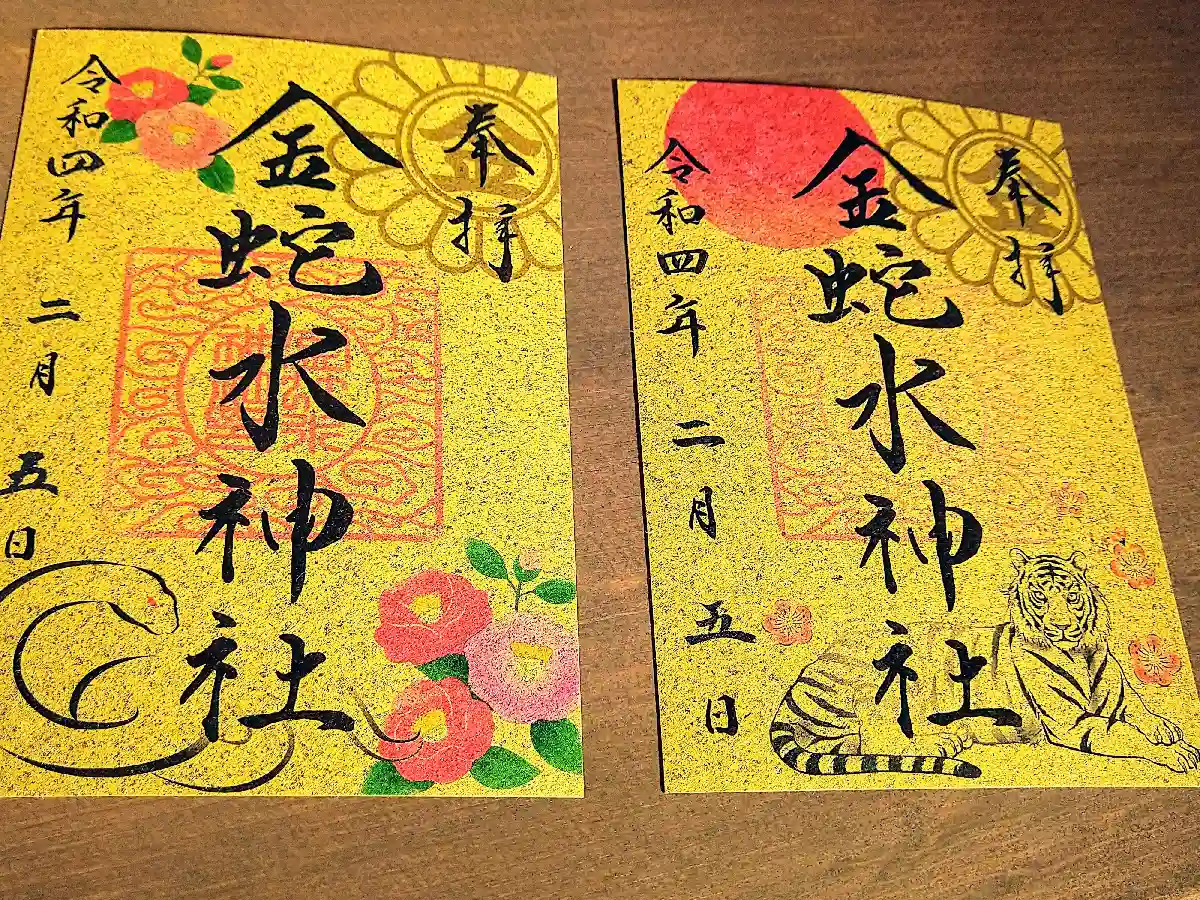 奉拝
金蛇水神社
令和四年二月五日
奉拝
金蛇水神社
令和四年二月五日